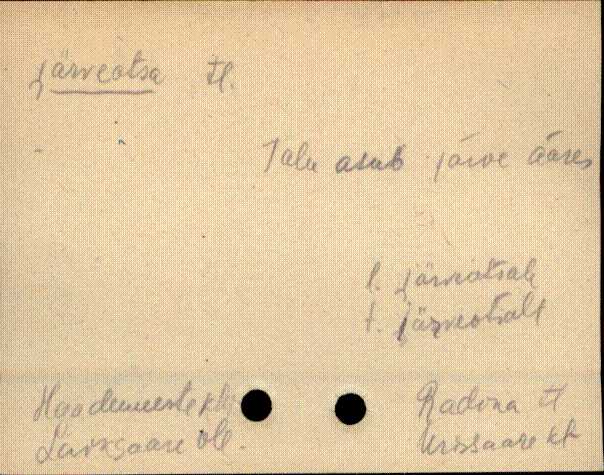 järveotsa tl.
Talu asub järve ääres
l. järveotsale
t. järveotsalt
Häädemeeste khk
Laiksaare vld.
Radina tl
Urissaare kk